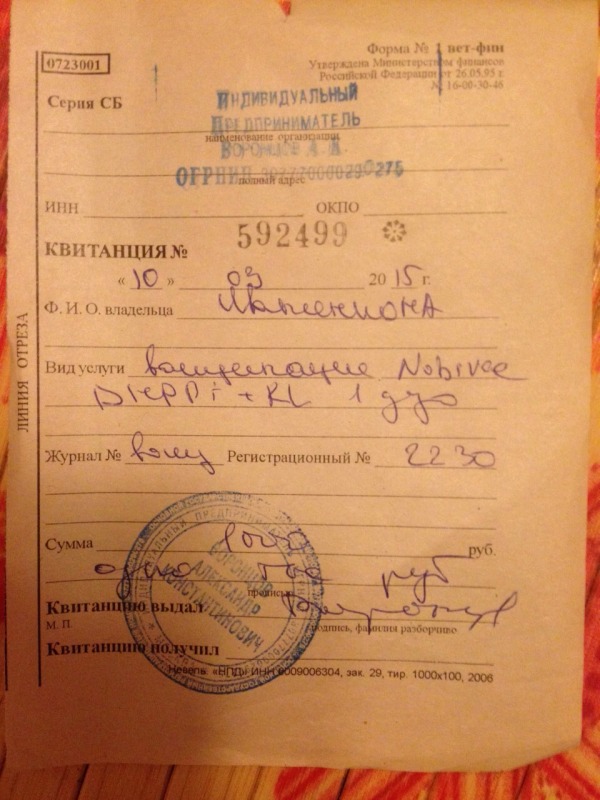 Форма № 1 вет-фин
0723001
Утверждена Министерством финансов
Российской Федерации от 26.05.95 г.
№ 16-00-30-46
Серия СБ
ИНДИВИДУАЛЬНЫЙ
ПРЕДПРИНИМАТЕЛЬ
наименование организации
ВОРОНЦОВ А. К.
ОГРНИП
полный адрес
ИНН ОКПО
592499
КВИТАНЦИЯ №
« 10 » 03 20 15 г.
Ф. И. О. владельца
Вид услуги вакцинация Nobivac
DHPPi + RL 1 доз
Журнал № вакц Регистрационный № 2230
Сумма руб.
одна руб
прописью
Квитанцию выдал
М. П. подпись, фамилия разборчиво
Квитанцию получил
ИНДИВИДУАЛЬНЫЙ ПРЕДПРИНИМАТЕЛЬ
ВОРОНЦОВ
АЛЕКСАНДР
КОНСТАНТИНОВИЧ
«НПД» ИНН 6009006304, зак. 29, тир. 1000х100, 2006
ЛИНИЯ ОТРЕЗА